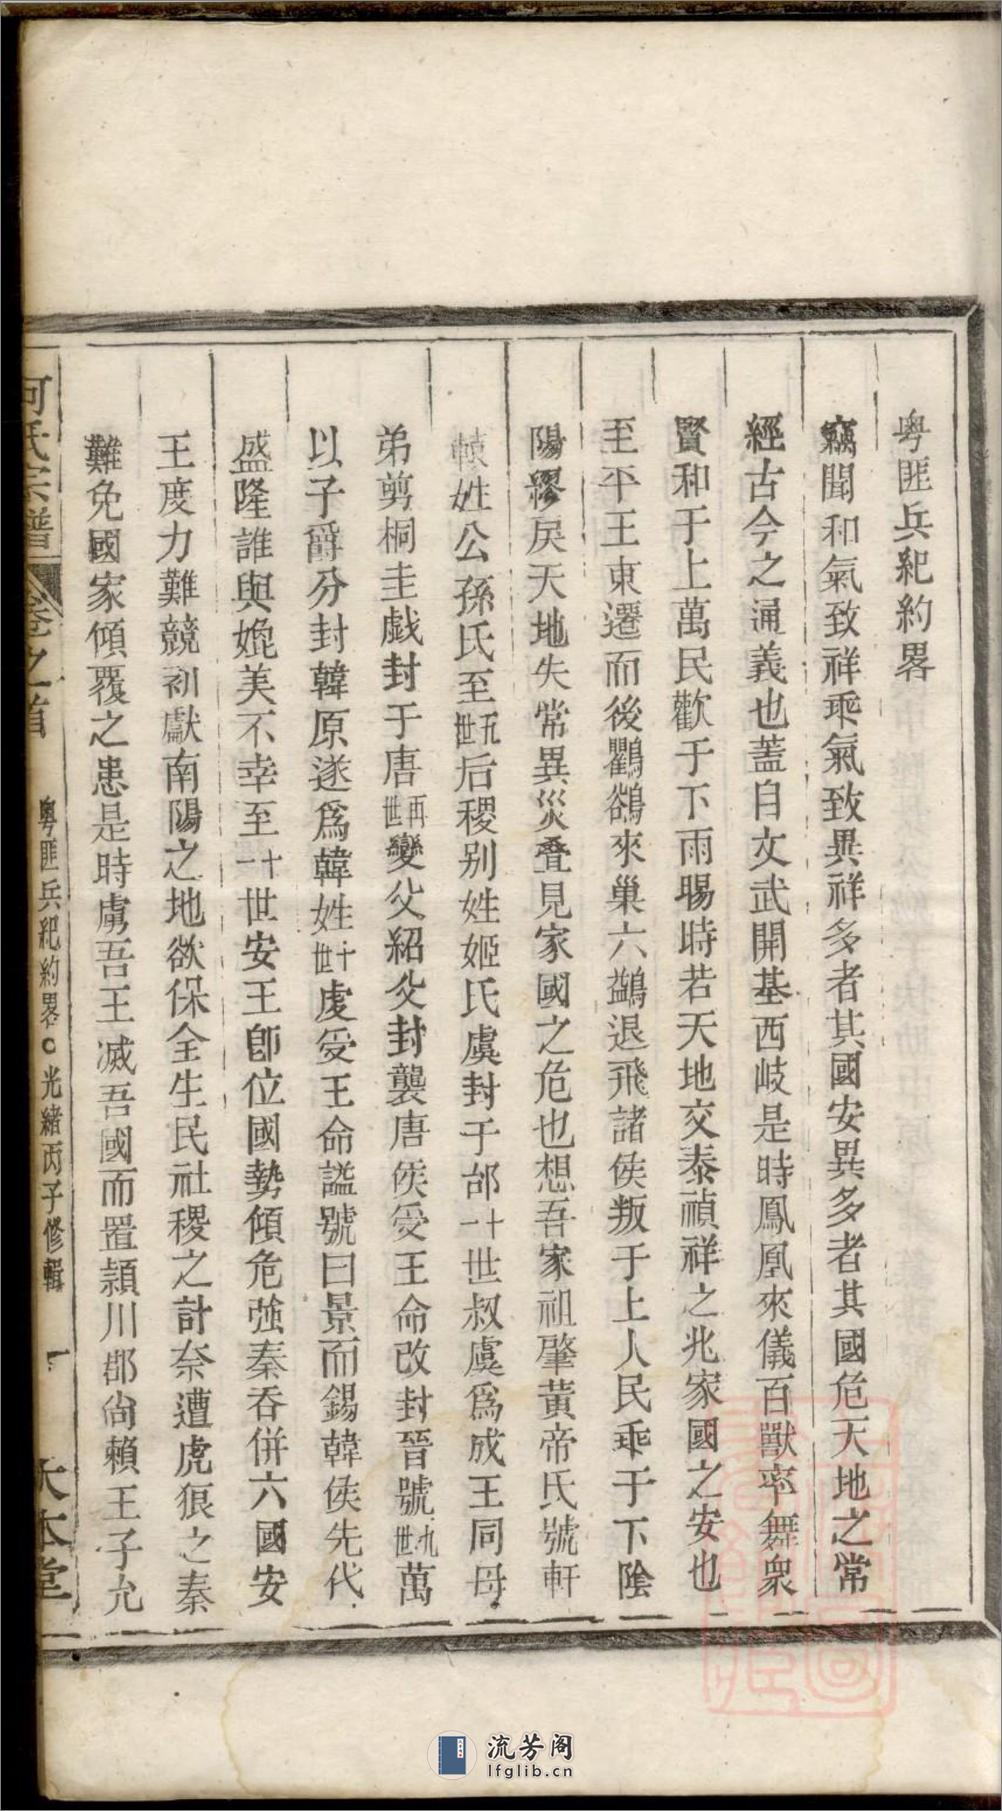 粤匪兵紀約畧
竊聞和氣致祥乖氣致異祥多者其國安異多者其國危天地之常
經古今之通義也蓋自文武開基西岐是時鳳凰來儀百獸率舞衆
賢和于上萬民歡于下雨暘時若天地交泰禎祥之兆家國之安也
至平王東遷而後鸜鵒來巢六鷁退飛諸侯叛于上人民乖于下陰
陽繆戾天地失常異災叠見家國之危也想吾家祖肇黃帝氏號軒
轅姓公孫氏至五世后稷別姓姬氏虞封于邰十一世叔虞爲成王同母
弟剪桐圭戲封于唐再世燮父紹父封襲唐侯受王命改封晉號九世萬
以子爵分封韓原遂爲韓姓十世虔受王命謚號曰景而錫韓侯先代
盛隆誰與媲美不幸至十一世安王卽位國勢傾危強秦吞併六國安
王度力難競初獻南陽之地欲保全生民社稷之計奈遭虎狼之秦
難免國家傾覆之患是時虜吾王滅吾國而置潁川郡尙賴王子允
何氏宗譜 卷之首 粤匪兵紀約畧 光緒丙子修輯 一 大本堂
流芳阁
lfglib.cn